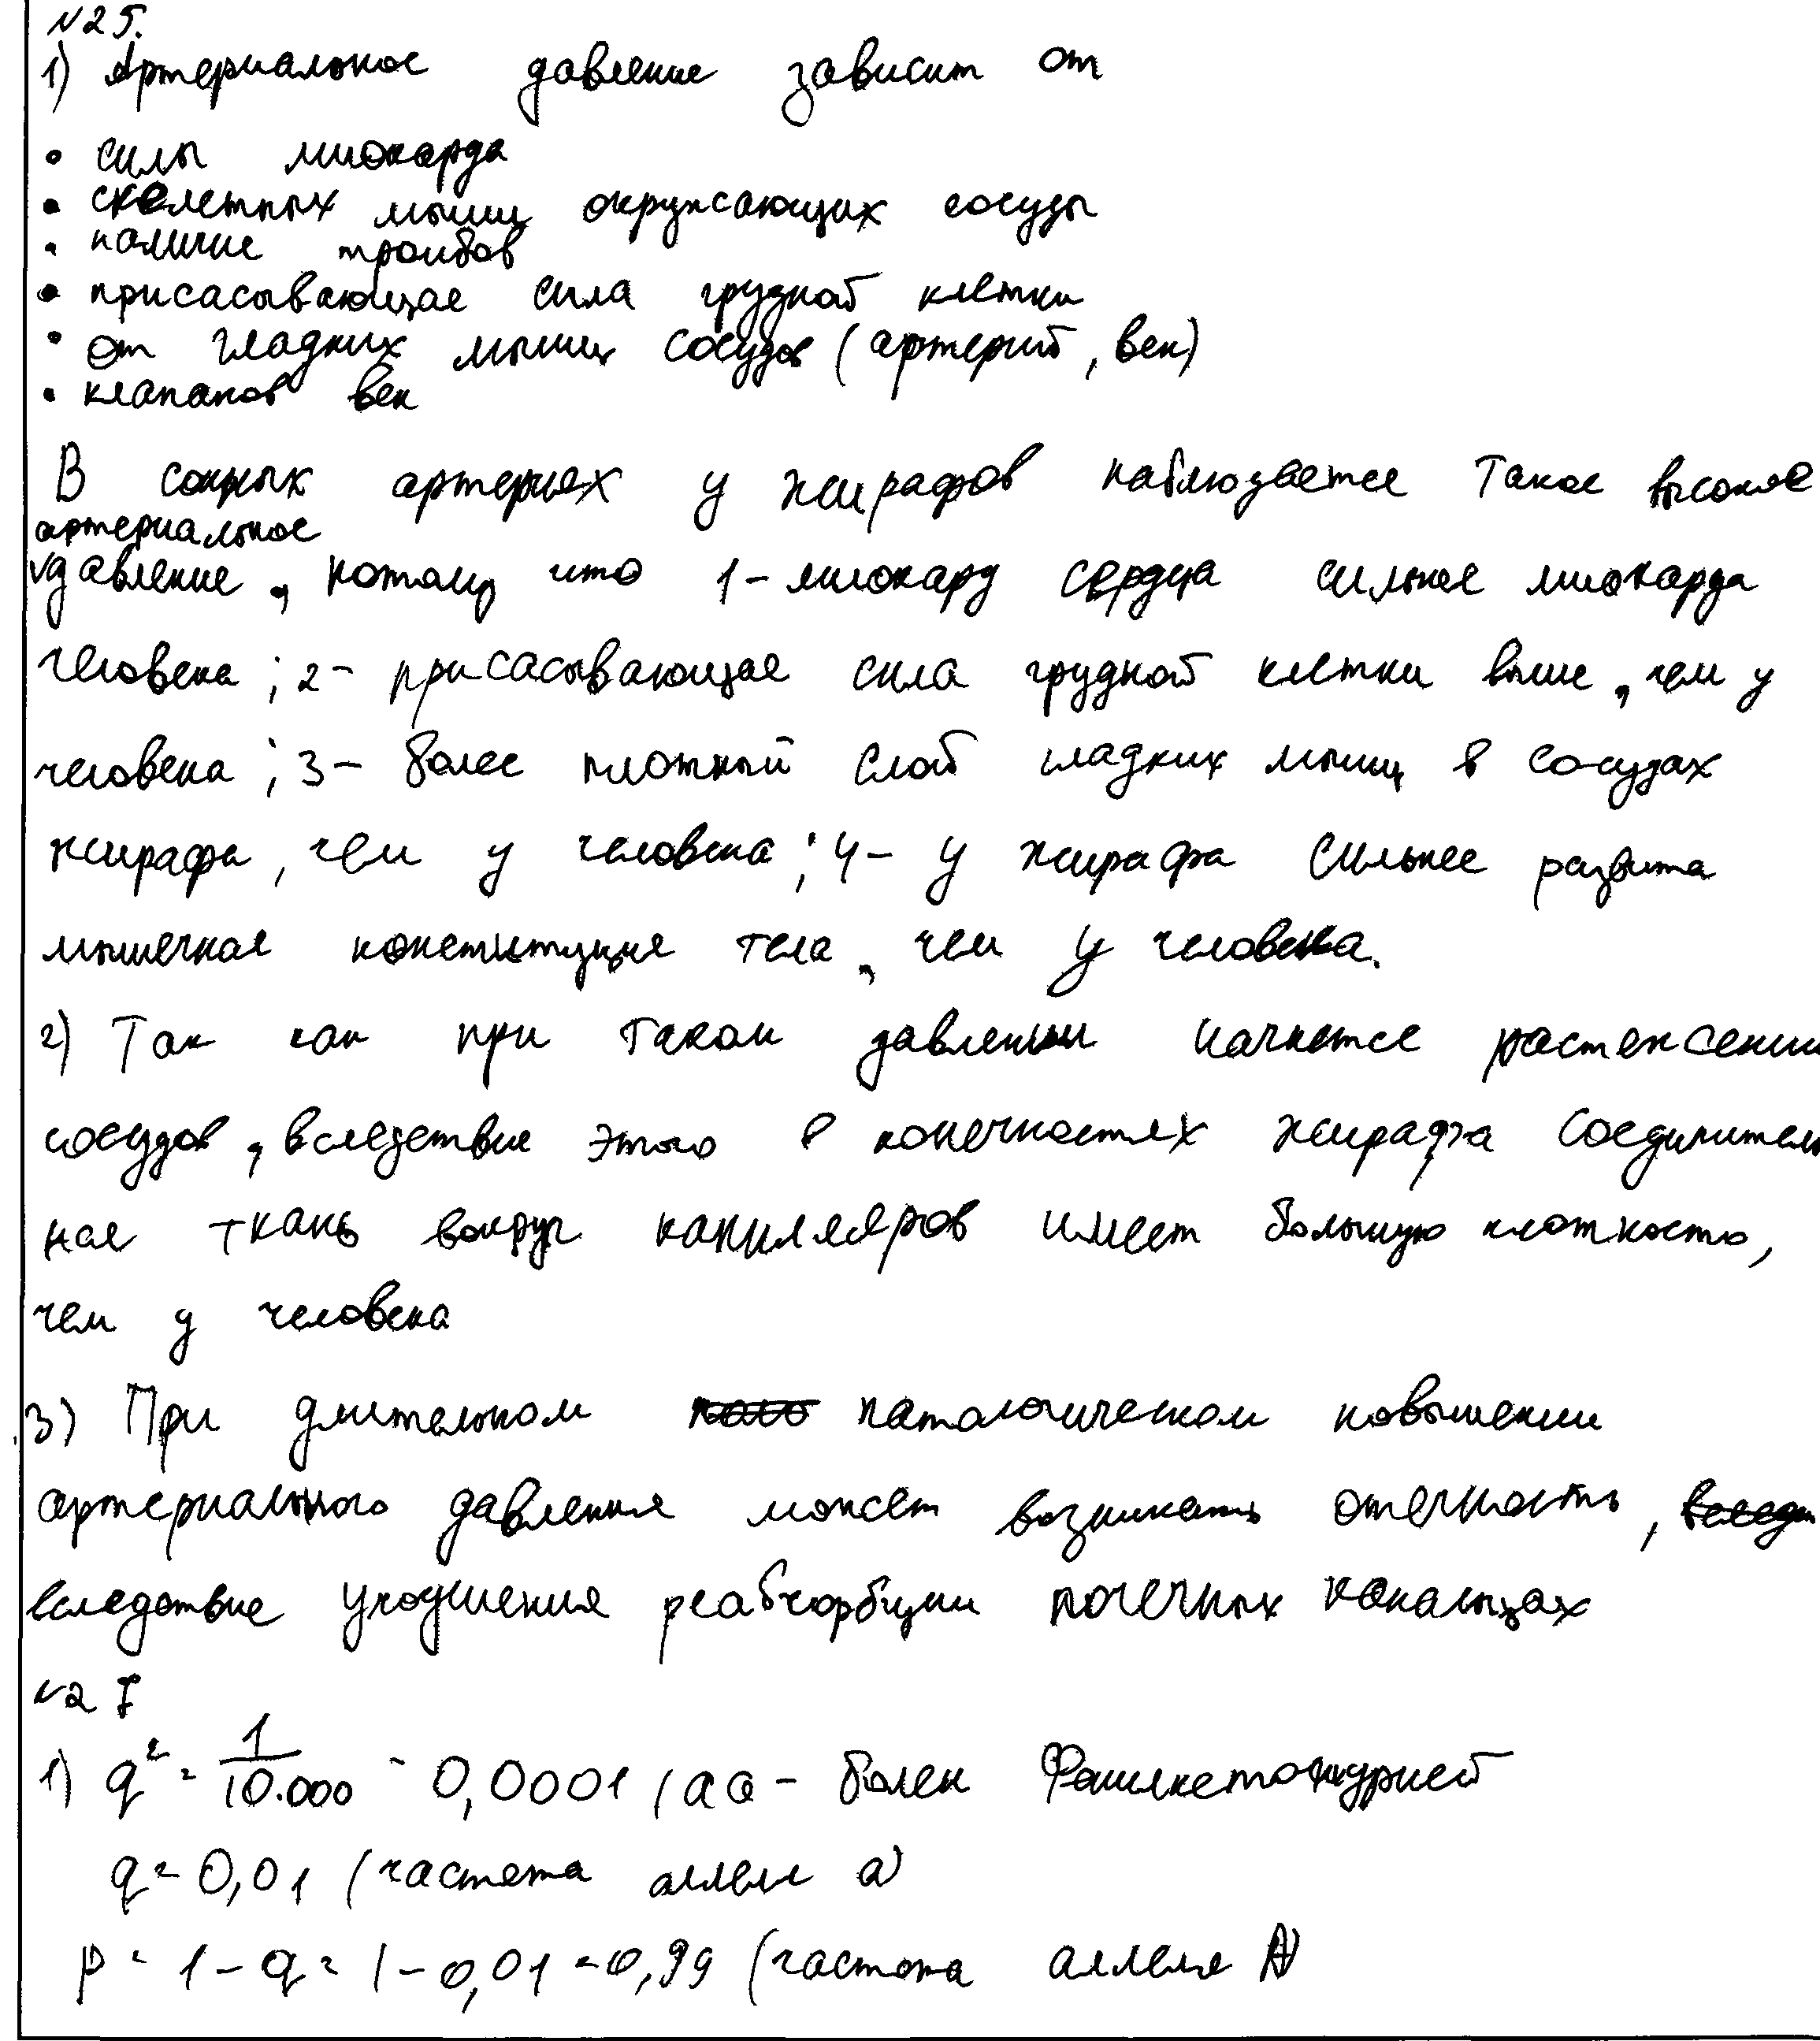 №25.
1) Артериальное давление зависит от
• силы миокарда
• скелетных мышц окружсающих сосуды
• наличие тромбов
• присасывающае сила грудной клетки
• от гладких мышц сосудов (артерий, вен)
• клапанов вен
В сонных артериях у жирафов наблюдается такое высокое
артериальное
√давление, потому что 1- миокард сердца сильнее миокарда
человека; 2- присасывающае сила грудной клетки выше, чем у
человека; 3- более плотный слой гладких мышц в сосудах
жирафа, чем у человека; 4- у жирафа сильнее развита
мышечная конституция тела, чем у человека.
2) Так как при таком давлении начнется растежсении
сосудов, вследствие этого в конечностях жирафа соединитель
ная ткань вокруг капилляров имеет большую плотность,
чем у человека
3) При длительном патологическом повышении
артериального давления может возникать отечность,
вследствие ухудшения реабсорбции почечных канальцах
№27
1) q² = 1/10.000 = 0,0001 (аа - болен Фенилкетонурией
q = 0,01 (частота аллеля а)
p = 1 - q = 1 - 0,01 = 0,99 (частота аллеля А)